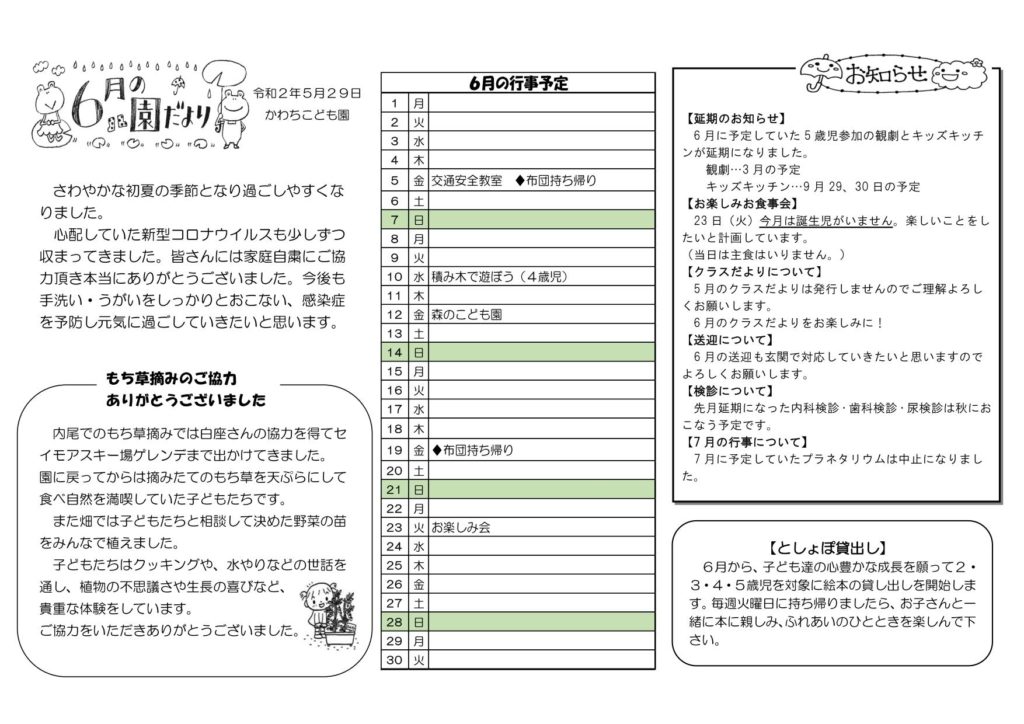 6月の
園だより
令和2年5月29日
かわちこども園
さわやかな初夏の季節となり過ごしやすくな
りました。
心配していた新型コロナウイルスも少しずつ
収まってきました。皆さんには家庭自粛にご協
力頂き本当にありがとうございました。今後も
手洗い・うがいをしっかりとおこない、感染症
を予防し元気に過ごしていきたいと思います。
もち草摘みのご協力
ありがとうございました
内尾でのもち草摘みでは白座さんの協力を得てセ
イモアスキー場ゲレンデまで出かけてきました。
園に戻ってからは摘みたてのもち草を天ぷらにして
食べ自然を満喫していた子どもたちです。
また畑では子どもたちと相談して決めた野菜の苗
をみんなで植えました。
子どもたちはクッキングや、水やりなどの世話を
通し、植物の不思議さや生長の喜びなど、
貴重な体験をしています。
ご協力をいただきありがとうございました。
6月の行事予定
1 月
2 火
3 水
4 木
5 金 交通安全教室 ◆布団持ち帰り
6 土
7 日
8 月
9 火
10 水 積み木で遊ぼう（4歳児）
11 木
12 金 森のこども園
13 土
14 日
15 月
16 火
17 水
18 木
19 金 ◆布団持ち帰り
20 土
21 日
22 月
23 火 お楽しみ会
24 水
25 木
26 金
27 土
28 日
29 月
30 火
お知らせ
【延期のお知らせ】
6月に予定していた5歳児参加の観劇とキッズキッチ
ンが延期になりました。
観劇…3月の予定
キッズキッチン…9月29、30日の予定
【お楽しみお食事会】
23日（火）今月は誕生児がいません。楽しいことをし
たいと計画しています。
（当日は主食はいりません。）
【クラスだよりについて】
5月のクラスだよりは発行しませんのでご理解よろし
くお願いします。
6月のクラスだよりをお楽しみに！
【送迎について】
6月の送迎も玄関で対応していきたいと思いますので
よろしくお願いします。
【検診について】
先月延期になった内科検診・歯科検診・尿検診は秋にお
こなう予定です。
【7月の行事について】
7月に予定していたプラネタリウムは中止になりまし
た。
【としょぽ貸出し】
6月から、子ども達の心豊かな成長を願って2・
3・4・5歳児を対象に絵本の貸し出しを開始しま
す。毎週火曜日に持ち帰りましたら、お子さんと一
緒に本に親しみ、ふれあいのひとときを楽しんで下
さい。